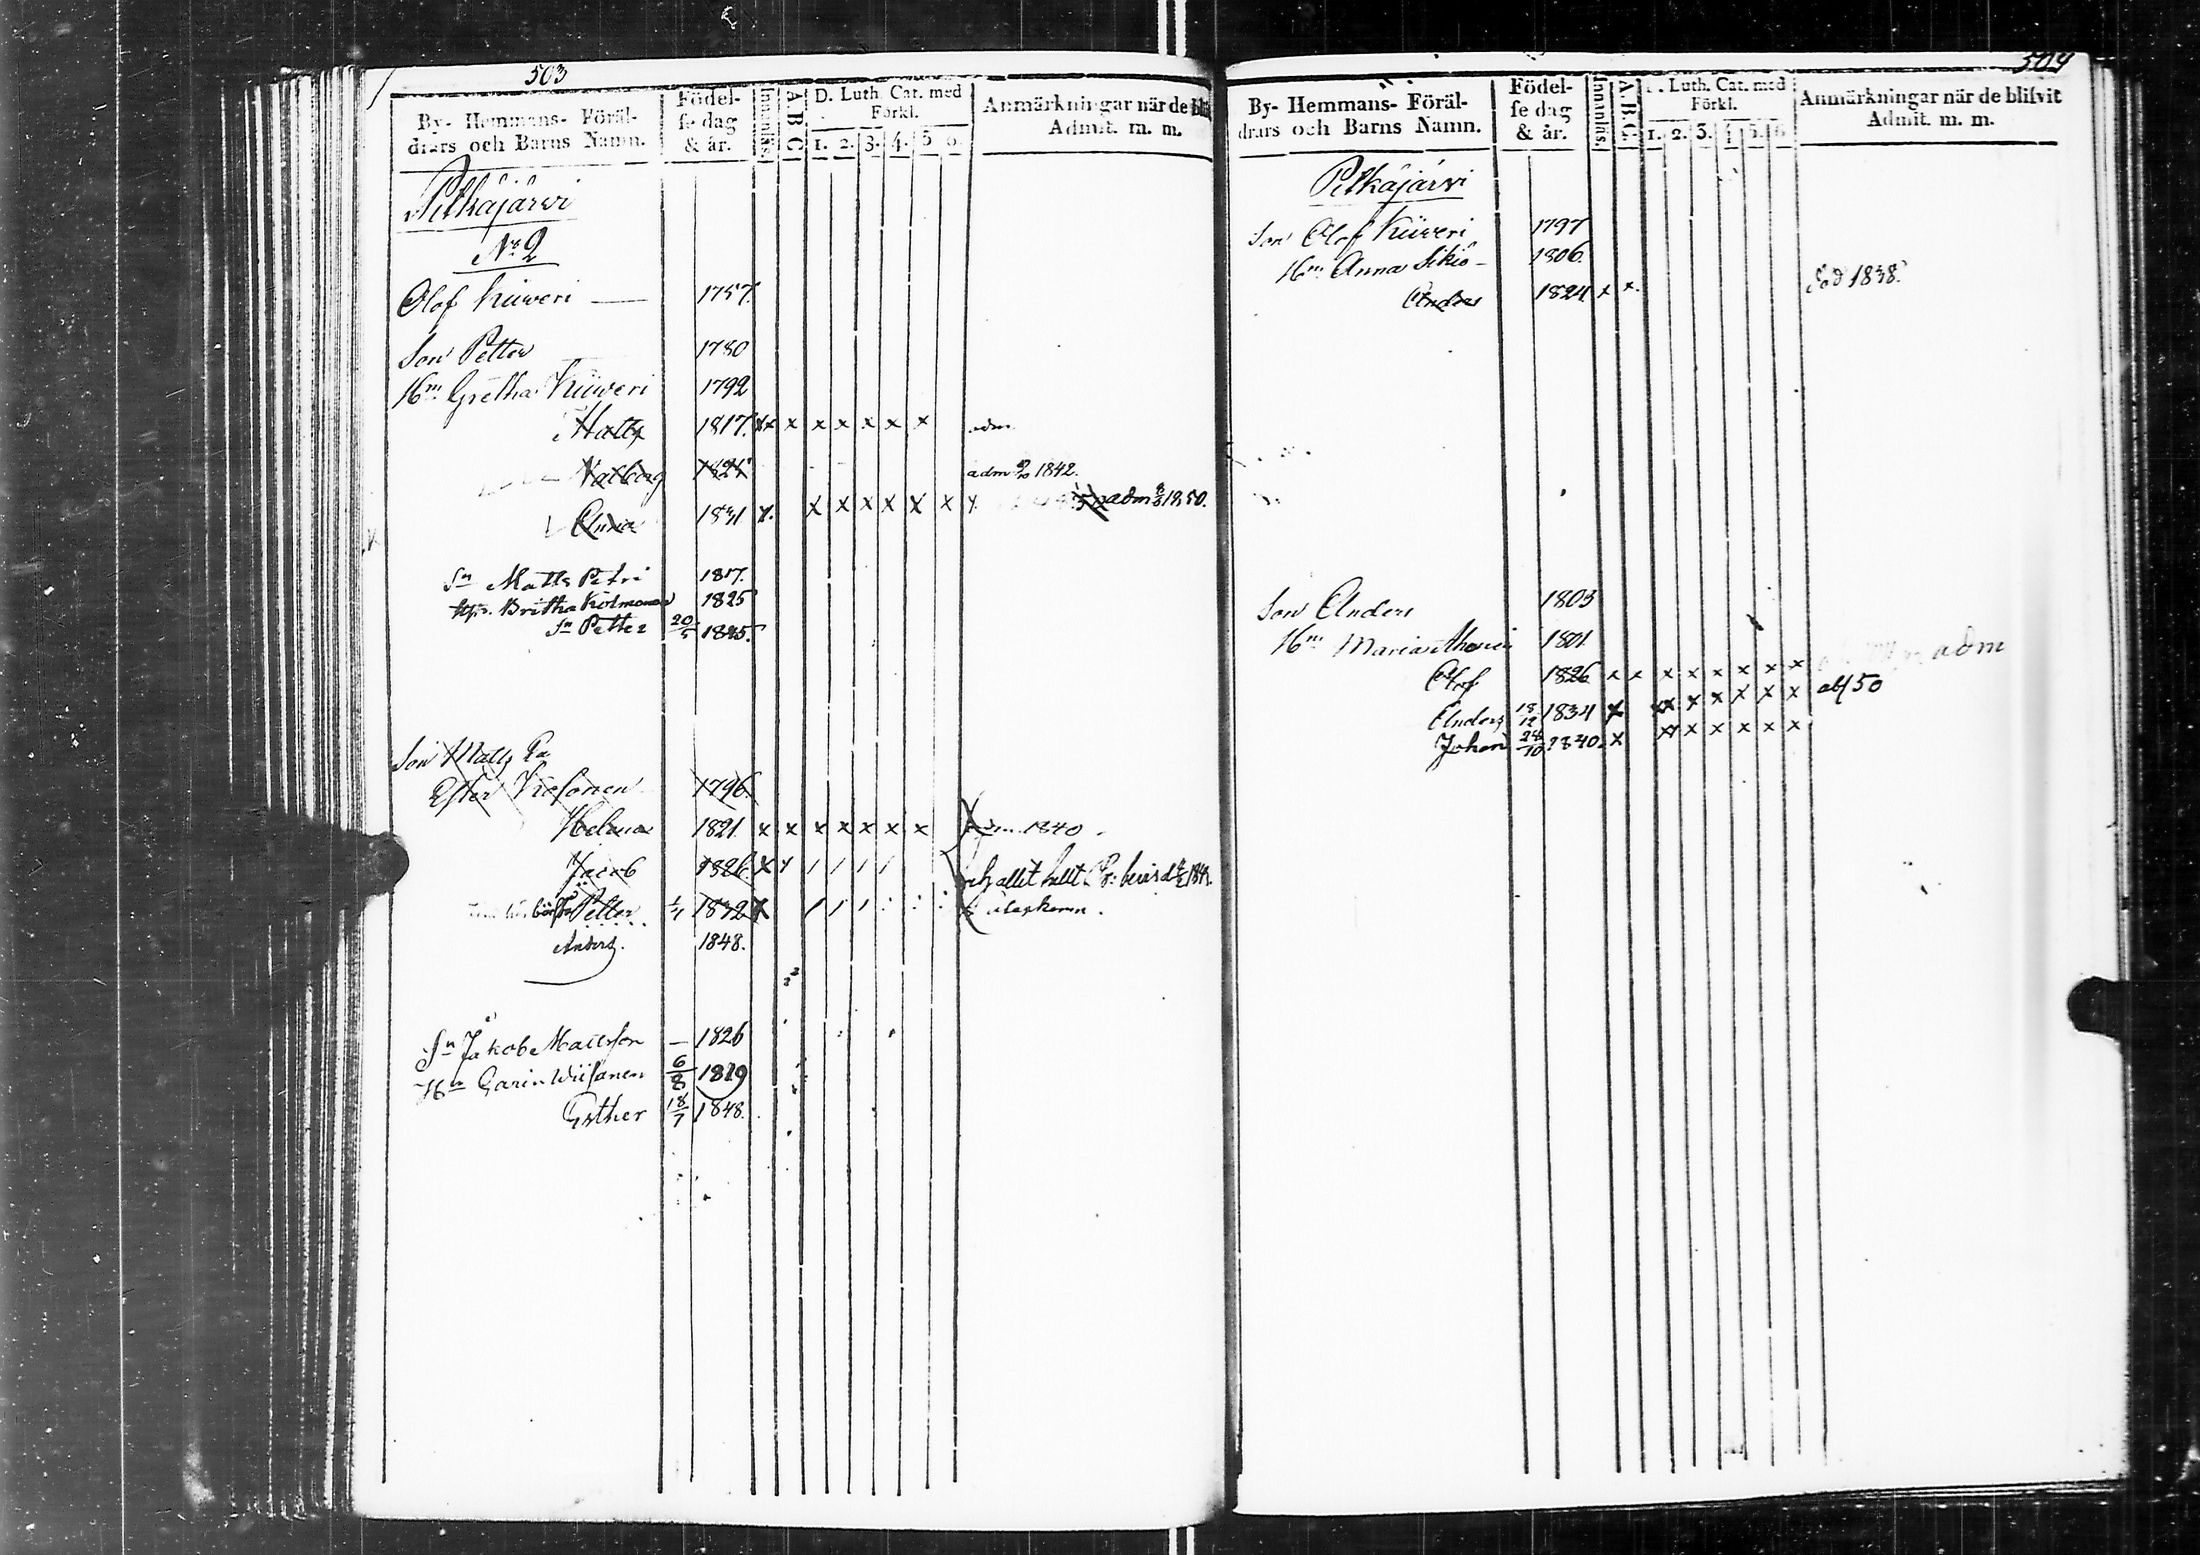 503
By- Hemmans- Föräl-
drars och Barns Namn.
Födel-
se dag
& år.
Innanläs.
A B C
D. Luth. Cat. med
Förkl.
1. 2. 3. 4. 5 6.
Anmärkningar när de bli
Admit. m. m.
Pitkäjärwi
No 2
Olof Kiiweri 1757.
Son Petter 1780
Hn Gretha Kiiweri 1792
Matts 1817. xx x x x x x x adm
Walborg 1821 adm 1842.
Anna 1831 x. x x x x x x adm 1850.
Sn Matts Petri 1817.
Britha Kolmonen 1825
Sn Petter 20/5 1845.
Son Matts
Ester 1796.
Helena 1821 x x x x x x x 1840
Jacob 1826. x
Petter 1832 x
Anders. 1848.
Sn Jakob Mattsson — 1826
Hn Carin Wiisanen 6/8 1819
Esther 18/7 1848.
504
By- Hemmans- Föräl-
drars och Barns Namn.
Födel-
se dag
& år.
Innanläs.
A.B.C.
D. Luth. Cat. med
Förkl.
1. 2. 3. 4. 5. 6
Anmärkningar när de blifvit
Admit. m. m.
Pitkäjärwi
Son Olof Kiiweri 1797
Hn Anna Sikiö - 1806.
Anders 1824 x x. död 1838.
Son Anders 1803
Hn Maria 1801
Olof 1826 x x x x x x x x adm
Anders 18/12 1834 x xx x x x x x abs 50
Johan 24/10 1840. x x x x x x x